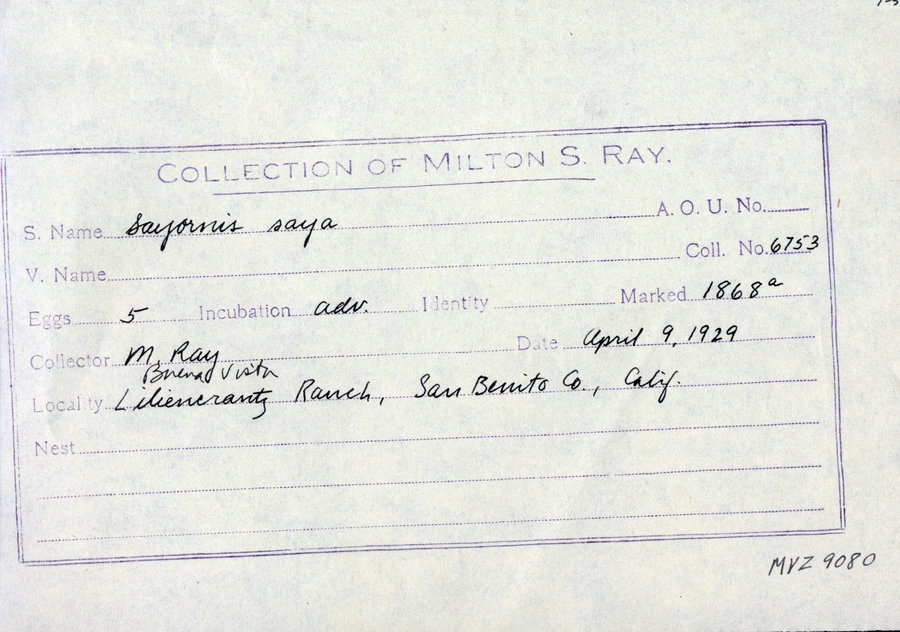 COLLECTION OF MILTON S. RAY.
A. O. U. No.
S. Name Sayornis saya
Coll. No. 6753
V. Name
Eggs 5 Incubation adv. Identity Marked 1868a
Collector M. Ray Date April 9, 1929
Buena Vista
Locality Liliencrantz Ranch, San Benito Co., Calif.
Nest
MVZ 9080